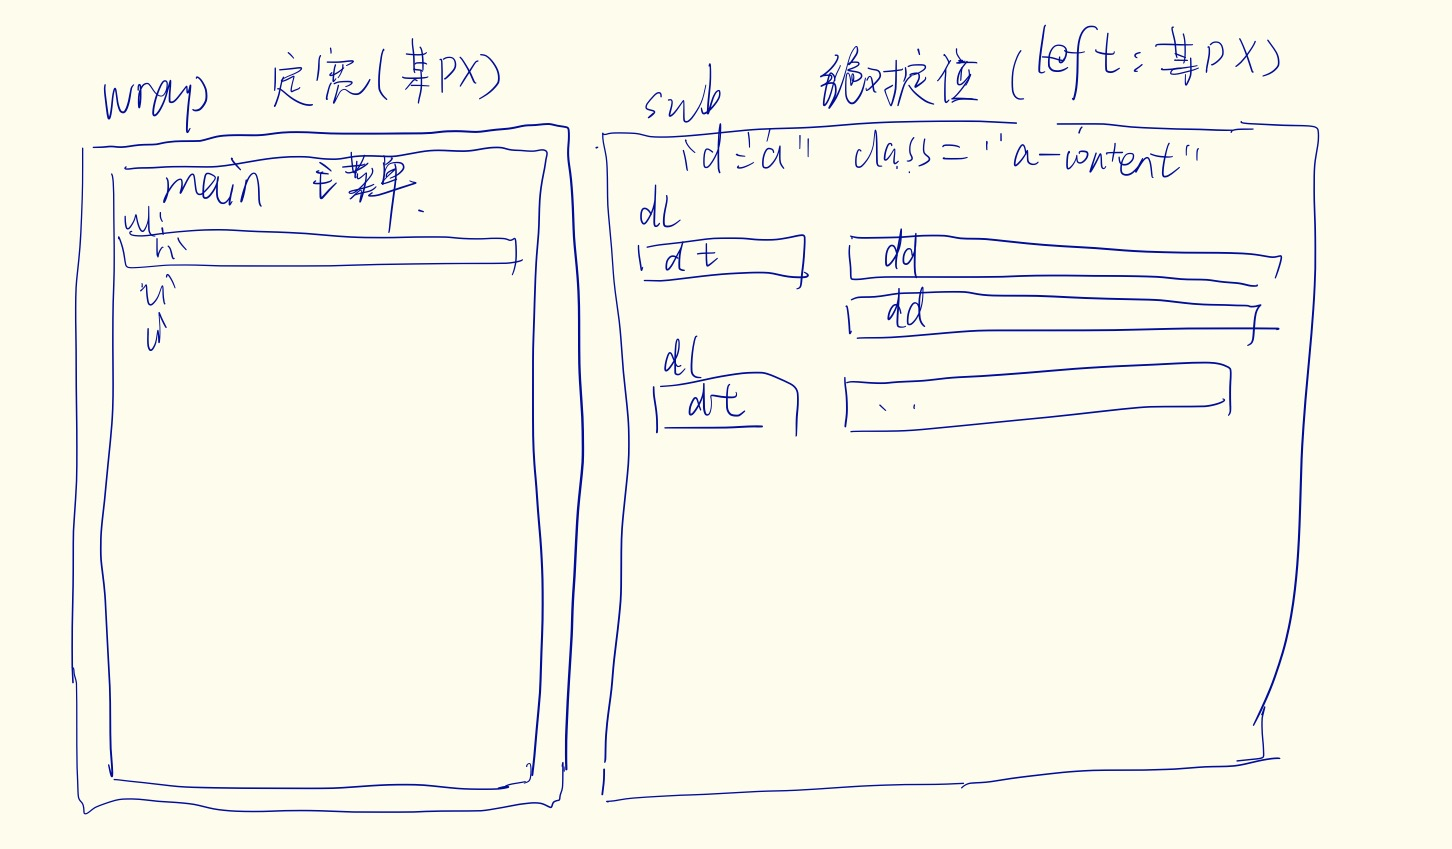 wrap 定宽(某PX)
main 主菜单
ul:
li
li
li
sub 绝对定位 (left:某PX)
id="a" class="a-content"
dl
dt dd
dd
dl
dt ..